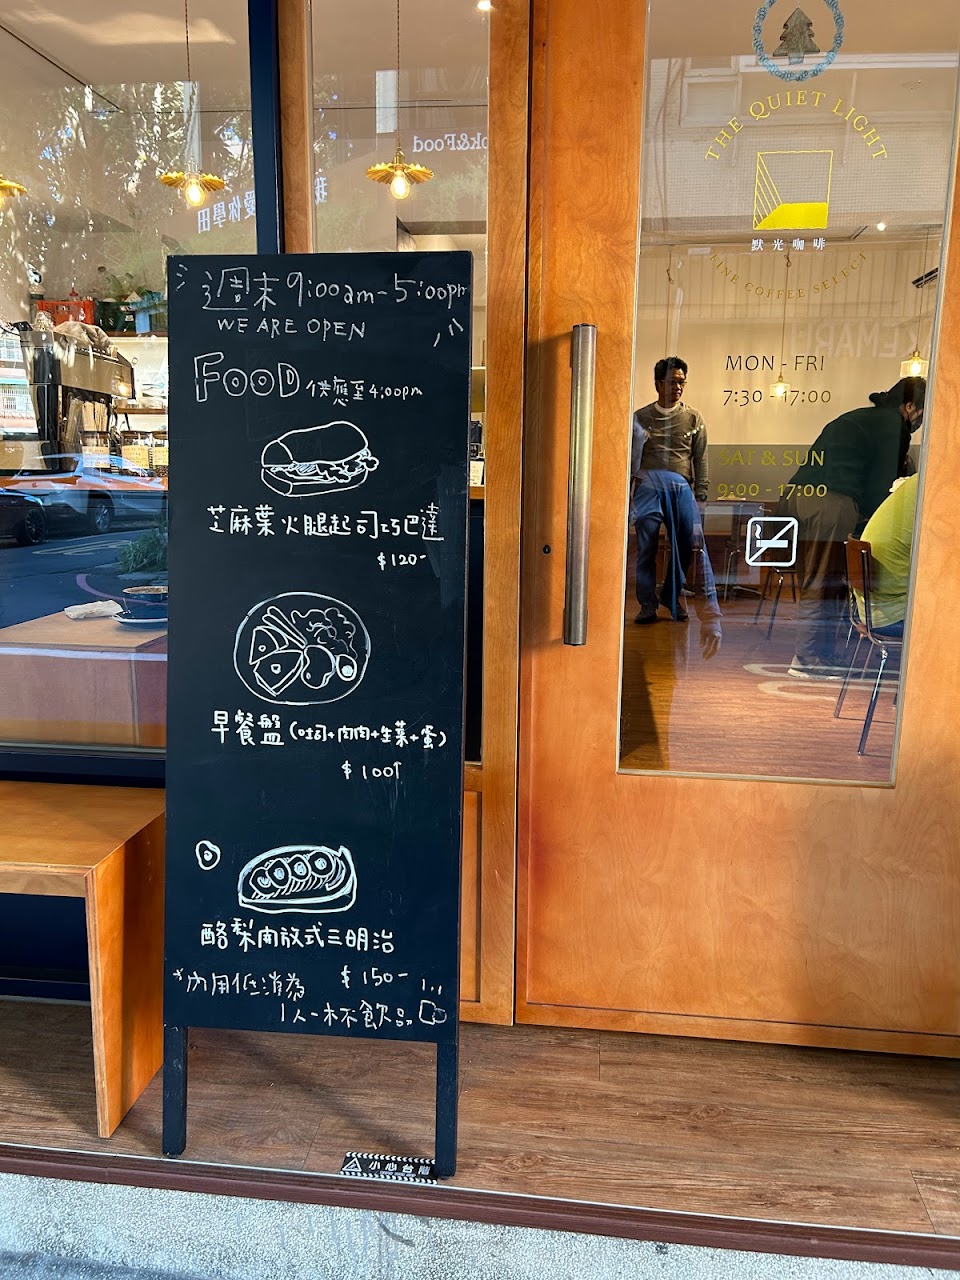 週末 9:00am-5:00pm
WE ARE OPEN
FOOD 供應至4:00pm
芝麻葉火腿起司巧巴達
$120-
早餐盤(吐司+肉肉+生菜+蛋)
$100↑
酪梨開放式三明治
$150-
*內用低消為
1人一杯飲品
小心台階
THE QUIET LIGHT
默光咖啡
FINE COFFEE SELECT
MON - FRI
7:30 - 17:00
SAT & SUN
9:00 - 17:00